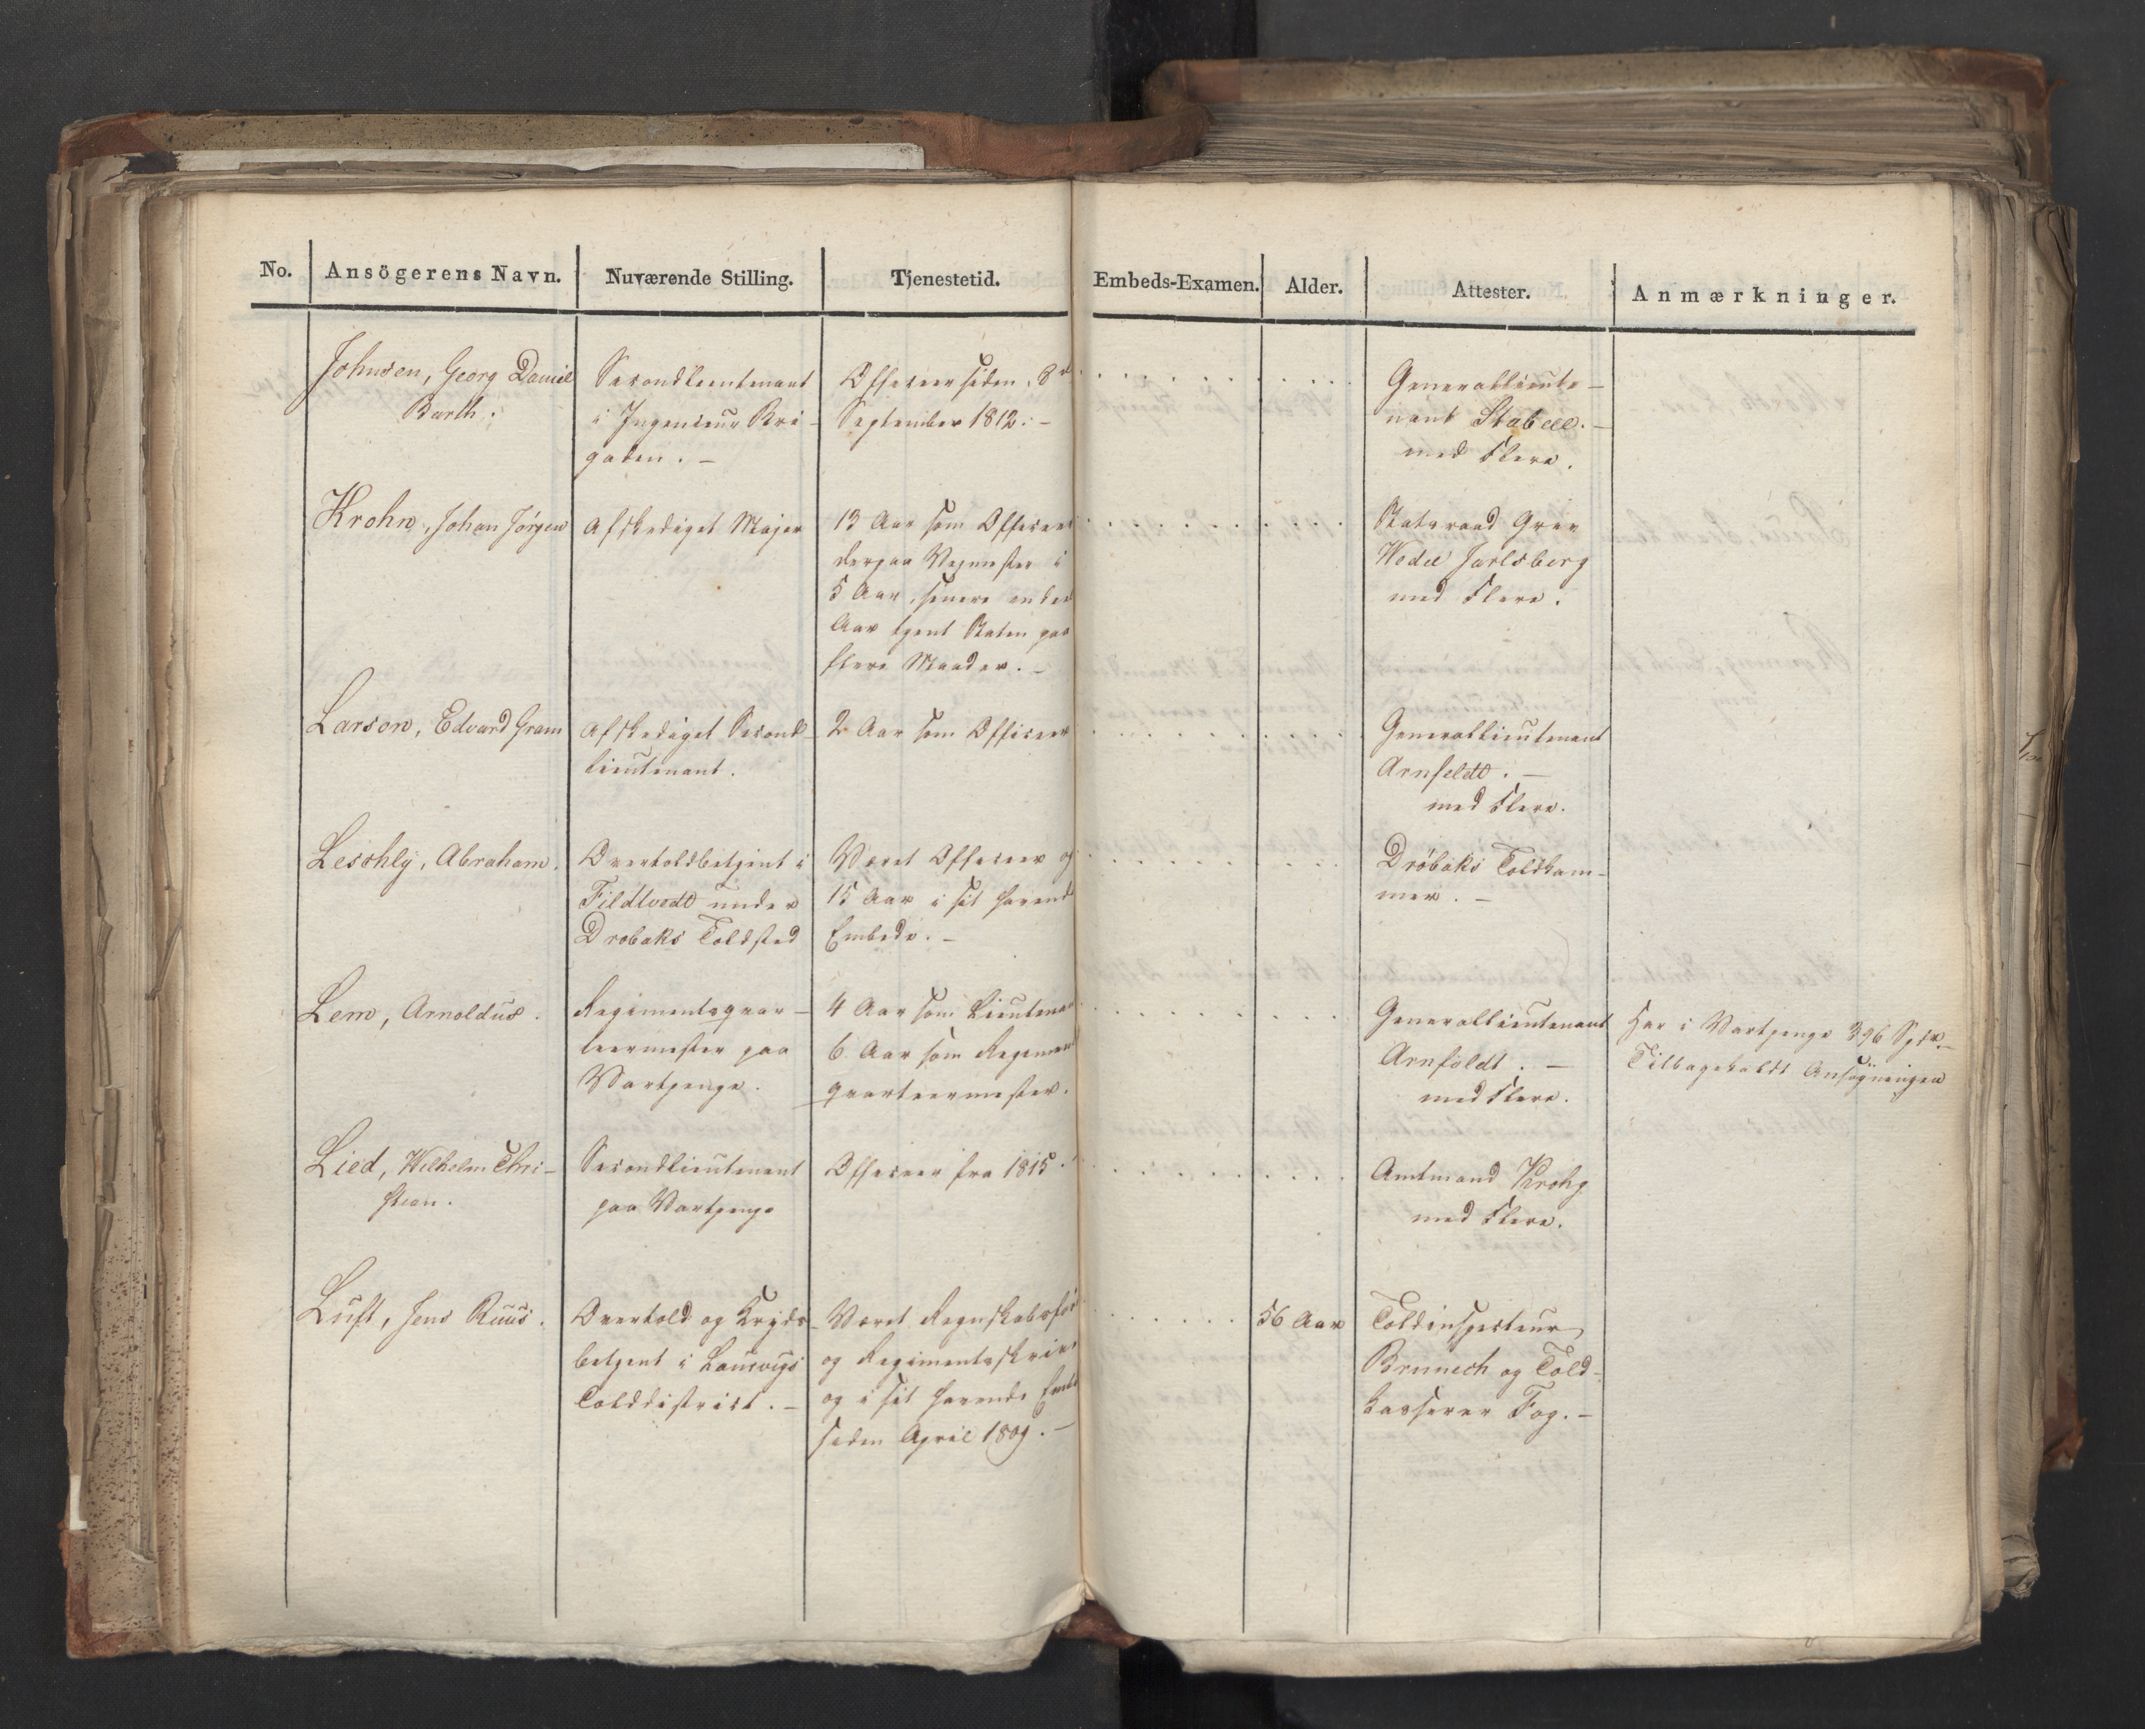 No. Ansögerens Navn. Nuværende Stilling. Tjenestetid. Embeds-Examen. Alder. Attester. Anmærkninger.
Johnsen, Georg Daniel
Barth.
Secondlieutenant
i Ingenieur Bri-
gaden. -
Officeer siden 8de
September 1812. -
Generallieute-
nant Stabell. -
med Flere.
Krohn, Johan Jörgen
Afskediget Major
13 Aar som Officeer
derpaa Vejmester i
5 Aar, senere endeel
Aar tjent Staten paa
flere Maader. -
Statsraad Grev
Wedel Jarlsberg
med Flere.
Larson, Edvard Gram
Afskediget Second-
lieutenant.
2 Aar som Officeer
Generallieutenant
Arnfeldt. -
med Flere.
Leschly, Abraham.
Overtoldbetjent i
Fildtvedt under
Drøbaks Toldsted
Været Officeer og
15 Aar i sit havende
Embede. -
Drøbaks Toldkam-
mer. -
Lem, Arnoldus.
Regimentsqvar-
teermester paa
Vartpenge.
4 Aar som Lieutenant
6 Aar som Regiments
qvarteermester.
Generallieutenant
Arnfeldt. -
med Flere.
Har i Vartpenge 396 Spdr. -
Tilbagekaldt Ansøgningen
Lied, Wilhelm Chri-
stian.
Secondlieutenant
paa Vartpenge
Officeer fra 1815.
Amtmand Krohg
med Flere.
Luft, Jens Ruus.
Overtold og Kryds-
betjent i Laurvigs
Tolddistrict. -
Været Regnskabsför
og Regimentsskriver
og i sit havende Embd
siden April 1809. -
56 Aar
Toldinspecteur
Brunech og Told-
kasserer Fog. -